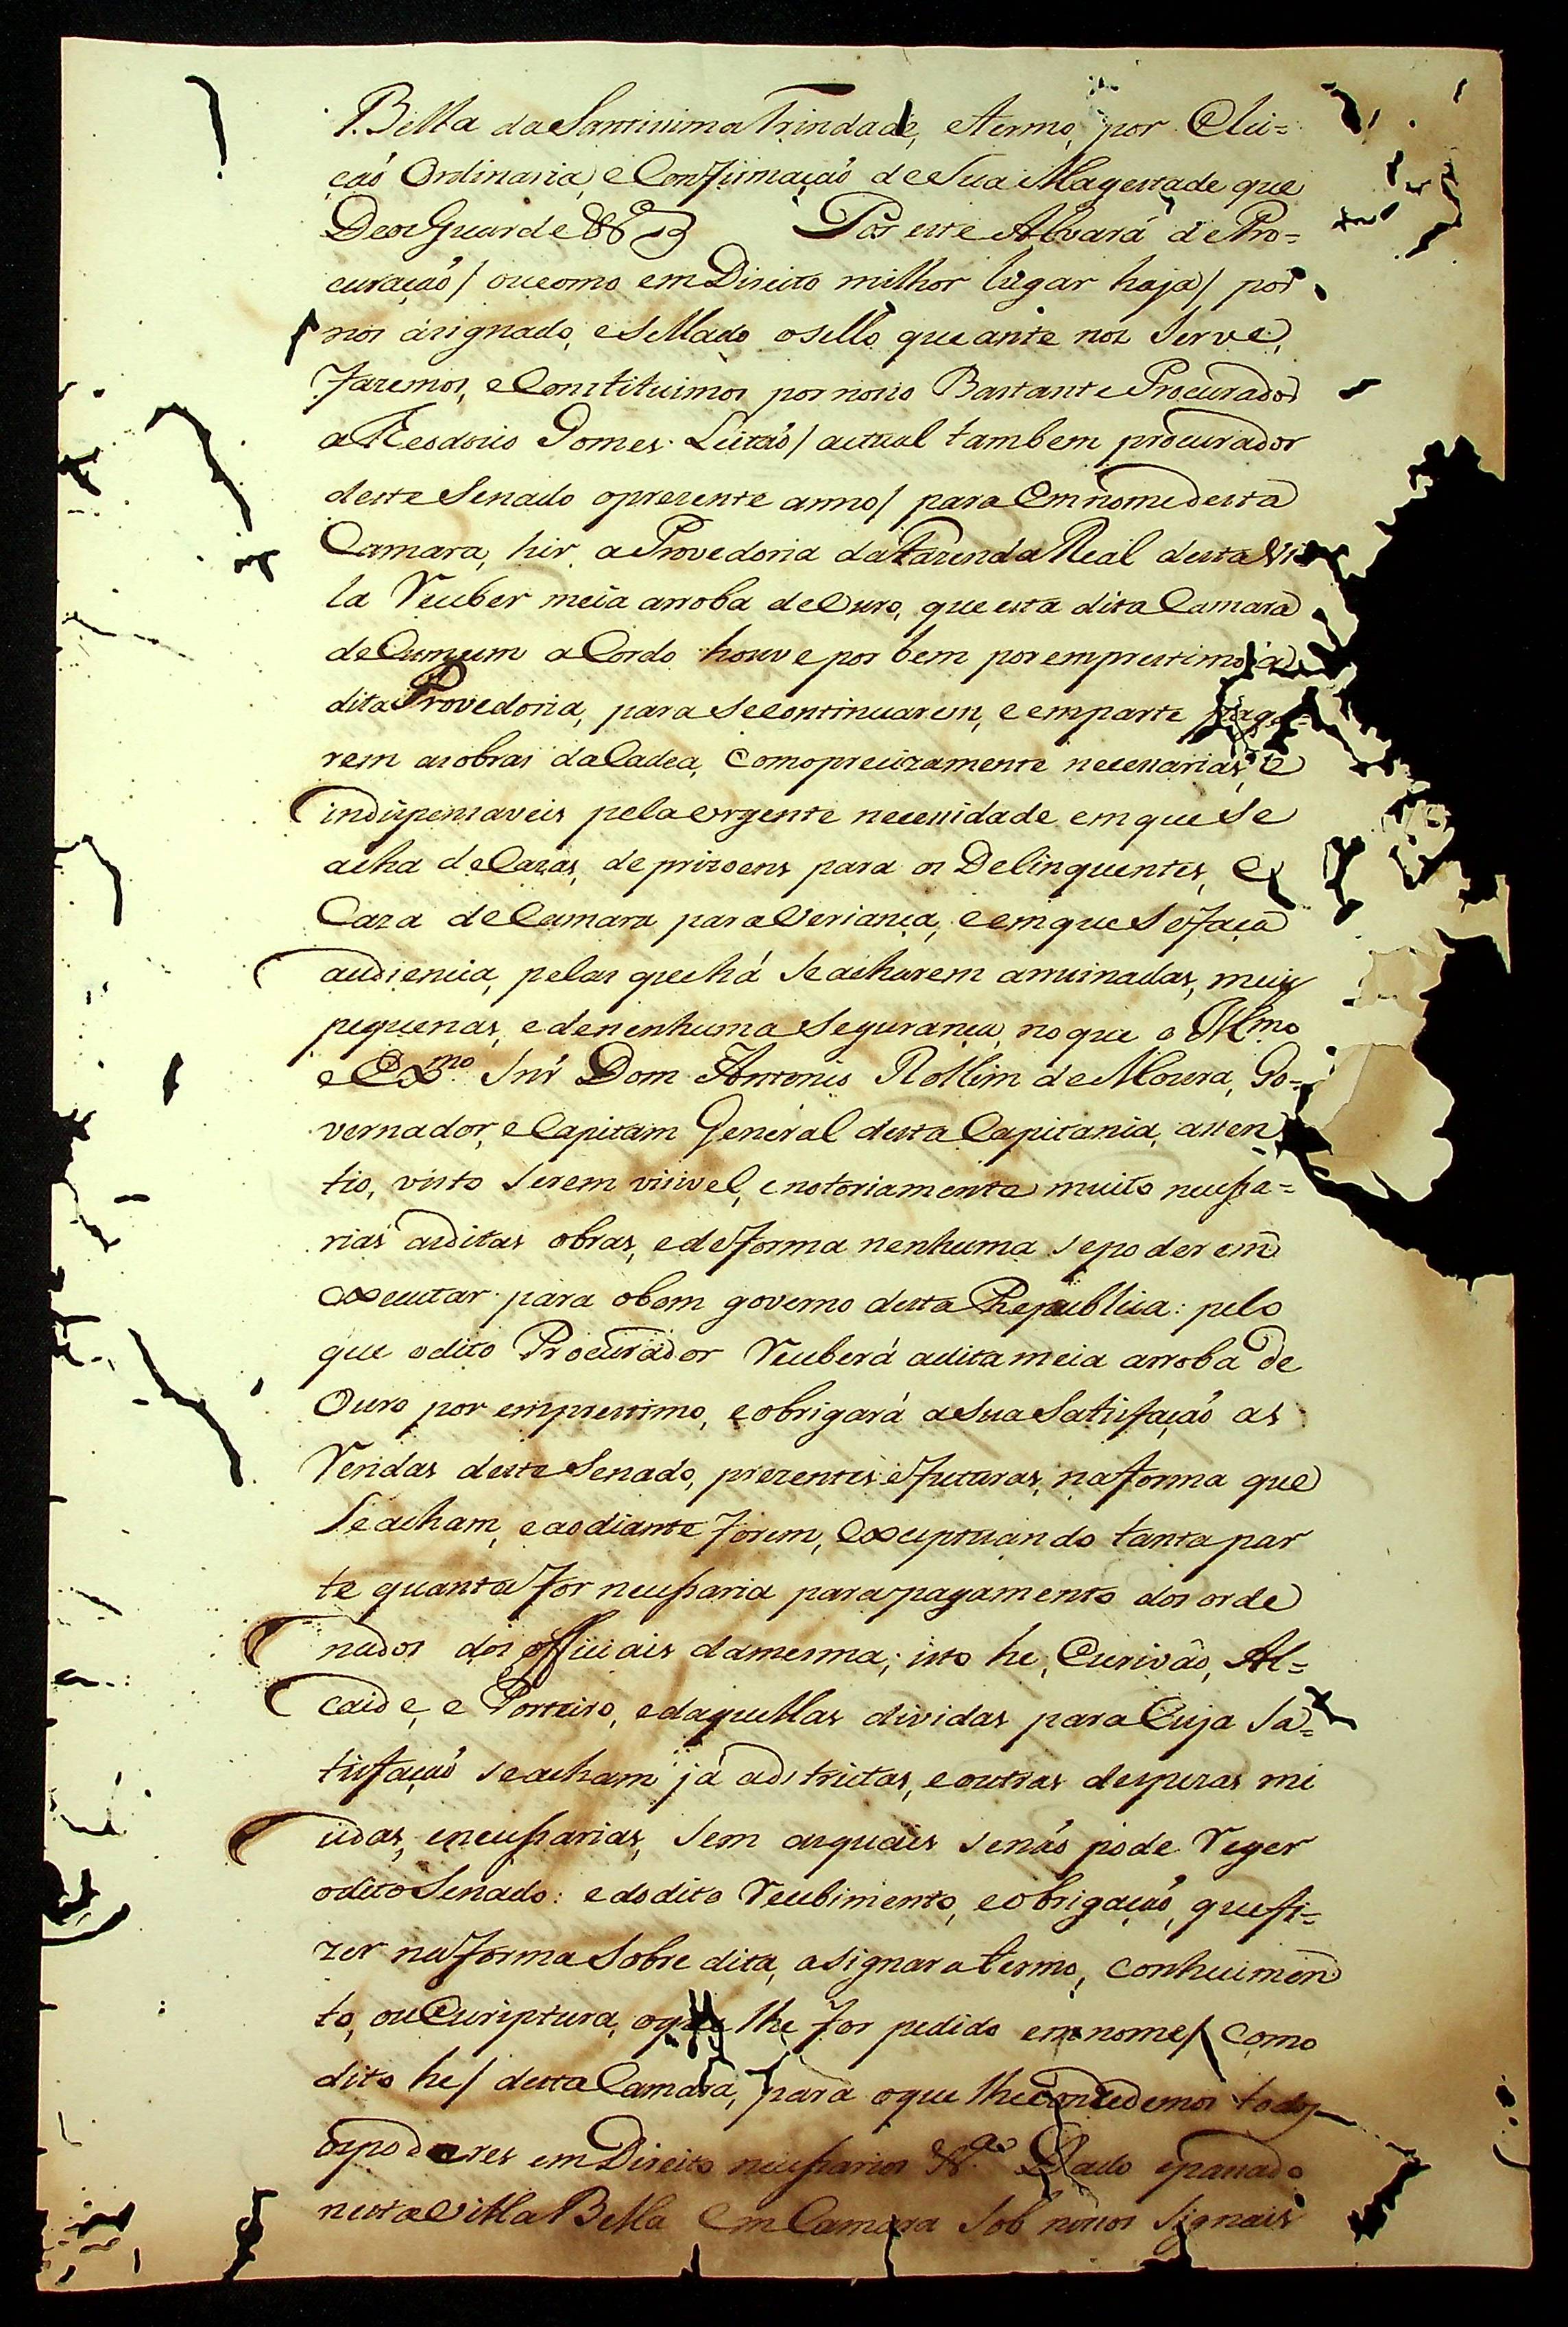 Bella da Santissima Trindade, e termo, por Elei=
çaõ Ordinaria, e Confirmaçaõ de Sua Magestade que
Deos Guarde &ª Por este Alvará de Pro=
curaçaõ / ou como em Direito milhor lugar haja / por
nos asignado, e sellado o sello que ante nos serve,
fazemos, e Constituimos por nosso Bastante Procurador
a Theodorio Gomes Leitaõ / actual tambem procurador
deste Senado o prezente anno / para Em nome desta
Camara, hir a Provedoria da Fazenda Real desta Vi
la Receber meia arroba de Ouro, que esta dita Camara
de Cumum aCordo houve por bem por emprestimo á
dita Provedoria, para se continuarem, e em parte paga=
rem as obras da Cadea, Como precizamente necessarias, e
indispensaveis pela Urgente necessidade em que se
acha de Cazas, de prizoens para os Delinquentes, e
Caza de Camara para Veriança, e em que se faça
audiencia, pelas que há se acharem arruinadas, muy
pequenas, e de nenhuma segurança, no que o Ill.mo
e Ex.mo Snr̃ Dom Antonio Rollim de Moura, Go=
vernador, e Capitam General desta Capitania, assen
tio, visto serem visivel, e notoriamente muito necessa=
rias as ditas obras, e de forma nenhuma se poderem
executar para o bom governo desta Republica: pelo
que o dito Procurador Receberá a dita meia arroba de
Ouro por emprestimo, e obrigará a Sua Satisfaçaõ as
Rendas deste Senado, prezentes e futuras, na forma que
Se acham, e ao diante forem, Exceptuando tanta par
te quanta for necessaria para pagamento dos orde
nados dos officiais da mesma; isto he, Escrivão, Al=
caide, e Porteiro, e daquellas dividas para Cuja Sa=
tisfaçaõ se acham já adstrictas, e outras despezas mi
udas, e necessarias, Sem as quais se naõ pode Reger
o dito Senado: e do dito Recebimento, e obrigaçaõ, que fi=
zer na forma Sobre dita, asignara termo, conhecimen
to, ou Escriptura, o que lhe for pedido em nome / como
dito he / desta Camara, para o que lhe concedemos todos
os poderes em Direito necessarios &.ª Dado e passado
nesta Villa Bella Em Camara Sob nossos Signais